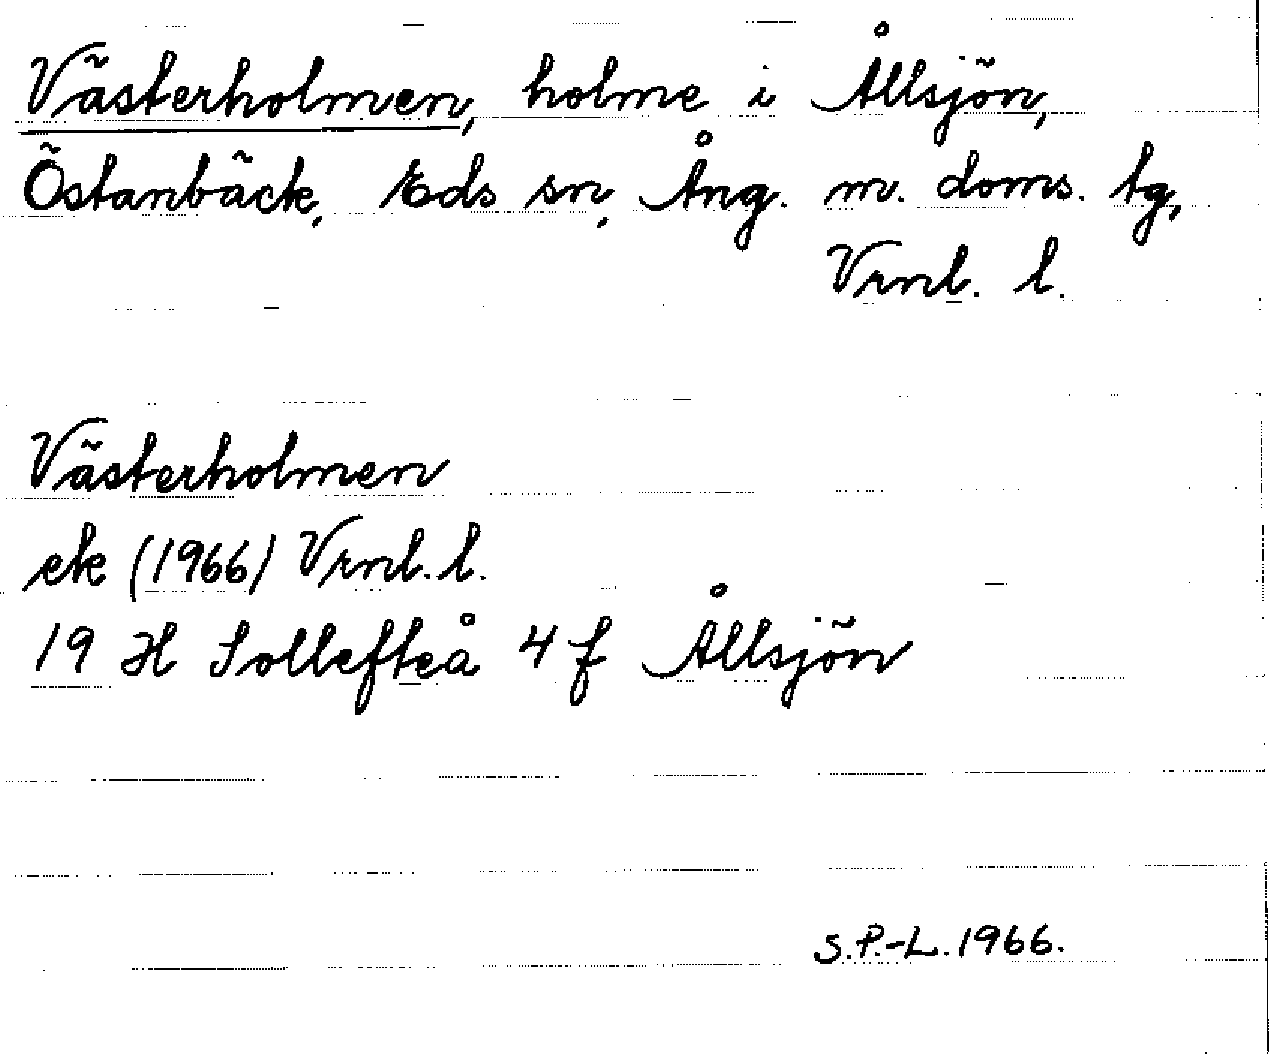 Västerholmen, holme i Ållsjön,
Östanbäck, Eds sn, Ång. m. doms. tg,
Vrnl. l.
Västerholmen
ek (1966) Vrnl. l.
19 H Sollefteå 4 f Ållsjön
S.P.-L. 1966.